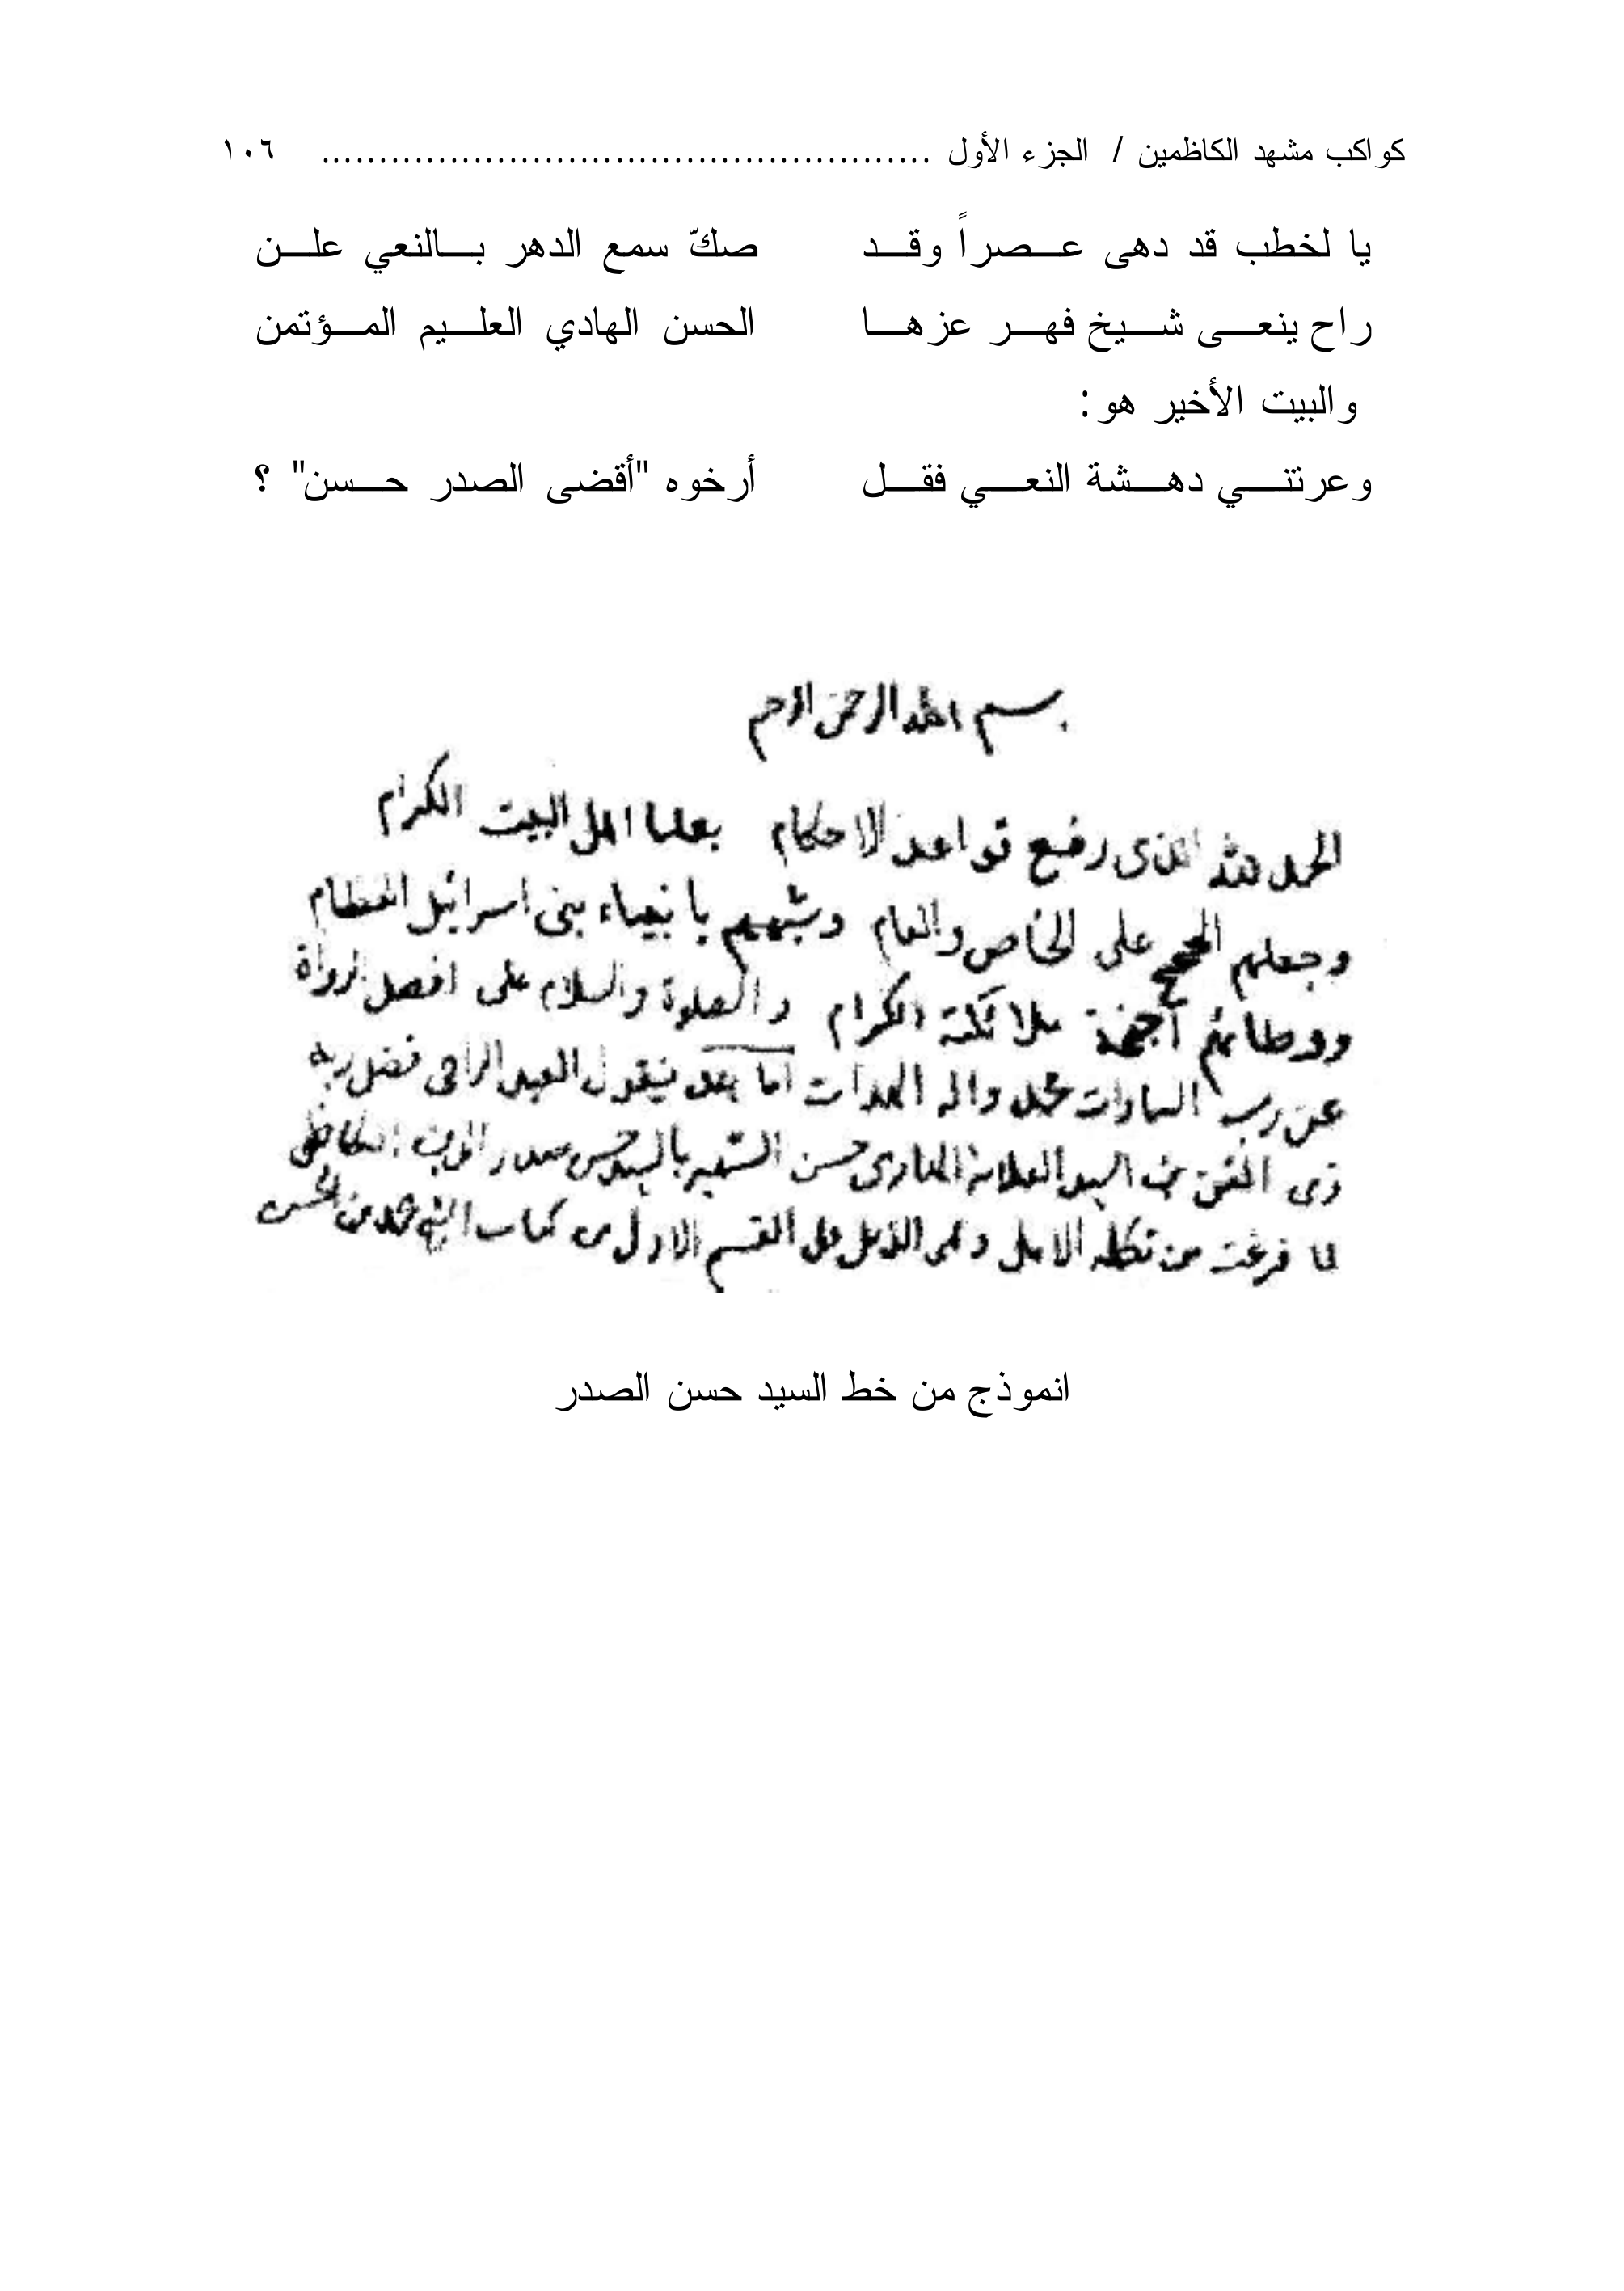 كواكب مشهد الكاظمين / الجزء الأول .................................................... ١٠٦
يا لخطب قد دهى عصراً وقد صكّ سمع الدهر بالنعي علن
راح ينعى شيخ فهر عزها الحسن الهادي العليم المؤتمن
والبيت الأخير هو:
وعرتني دهشة النعي فقل أرخوه "أقضى الصدر حسن" ؟
بسم الله الرحمن الرحيم
الحمد لله الذى رفع قواعد الاحكام بعلماء اهل البيت الكرام
وجعلهم الحجج على الخاص والعام وشبههم بانبياء بنى اسرائيل العظام
ووطائهم أجنحة ملائكته الكرام والصلوة والسلام على افضل الرواة
عن رب السماوات محمد واله الهداة أما بعد فيقول العبد الراجى فضل ربه
ذى المنن السيد العلامة الهادى حسن الشهير بالسيد حسن صدر الدين الكاظمى
لما فرغت من تكملة الامل على القسم الاول من كتاب الشيخ محمد بن الحسن
انموذج من خط السيد حسن الصدر